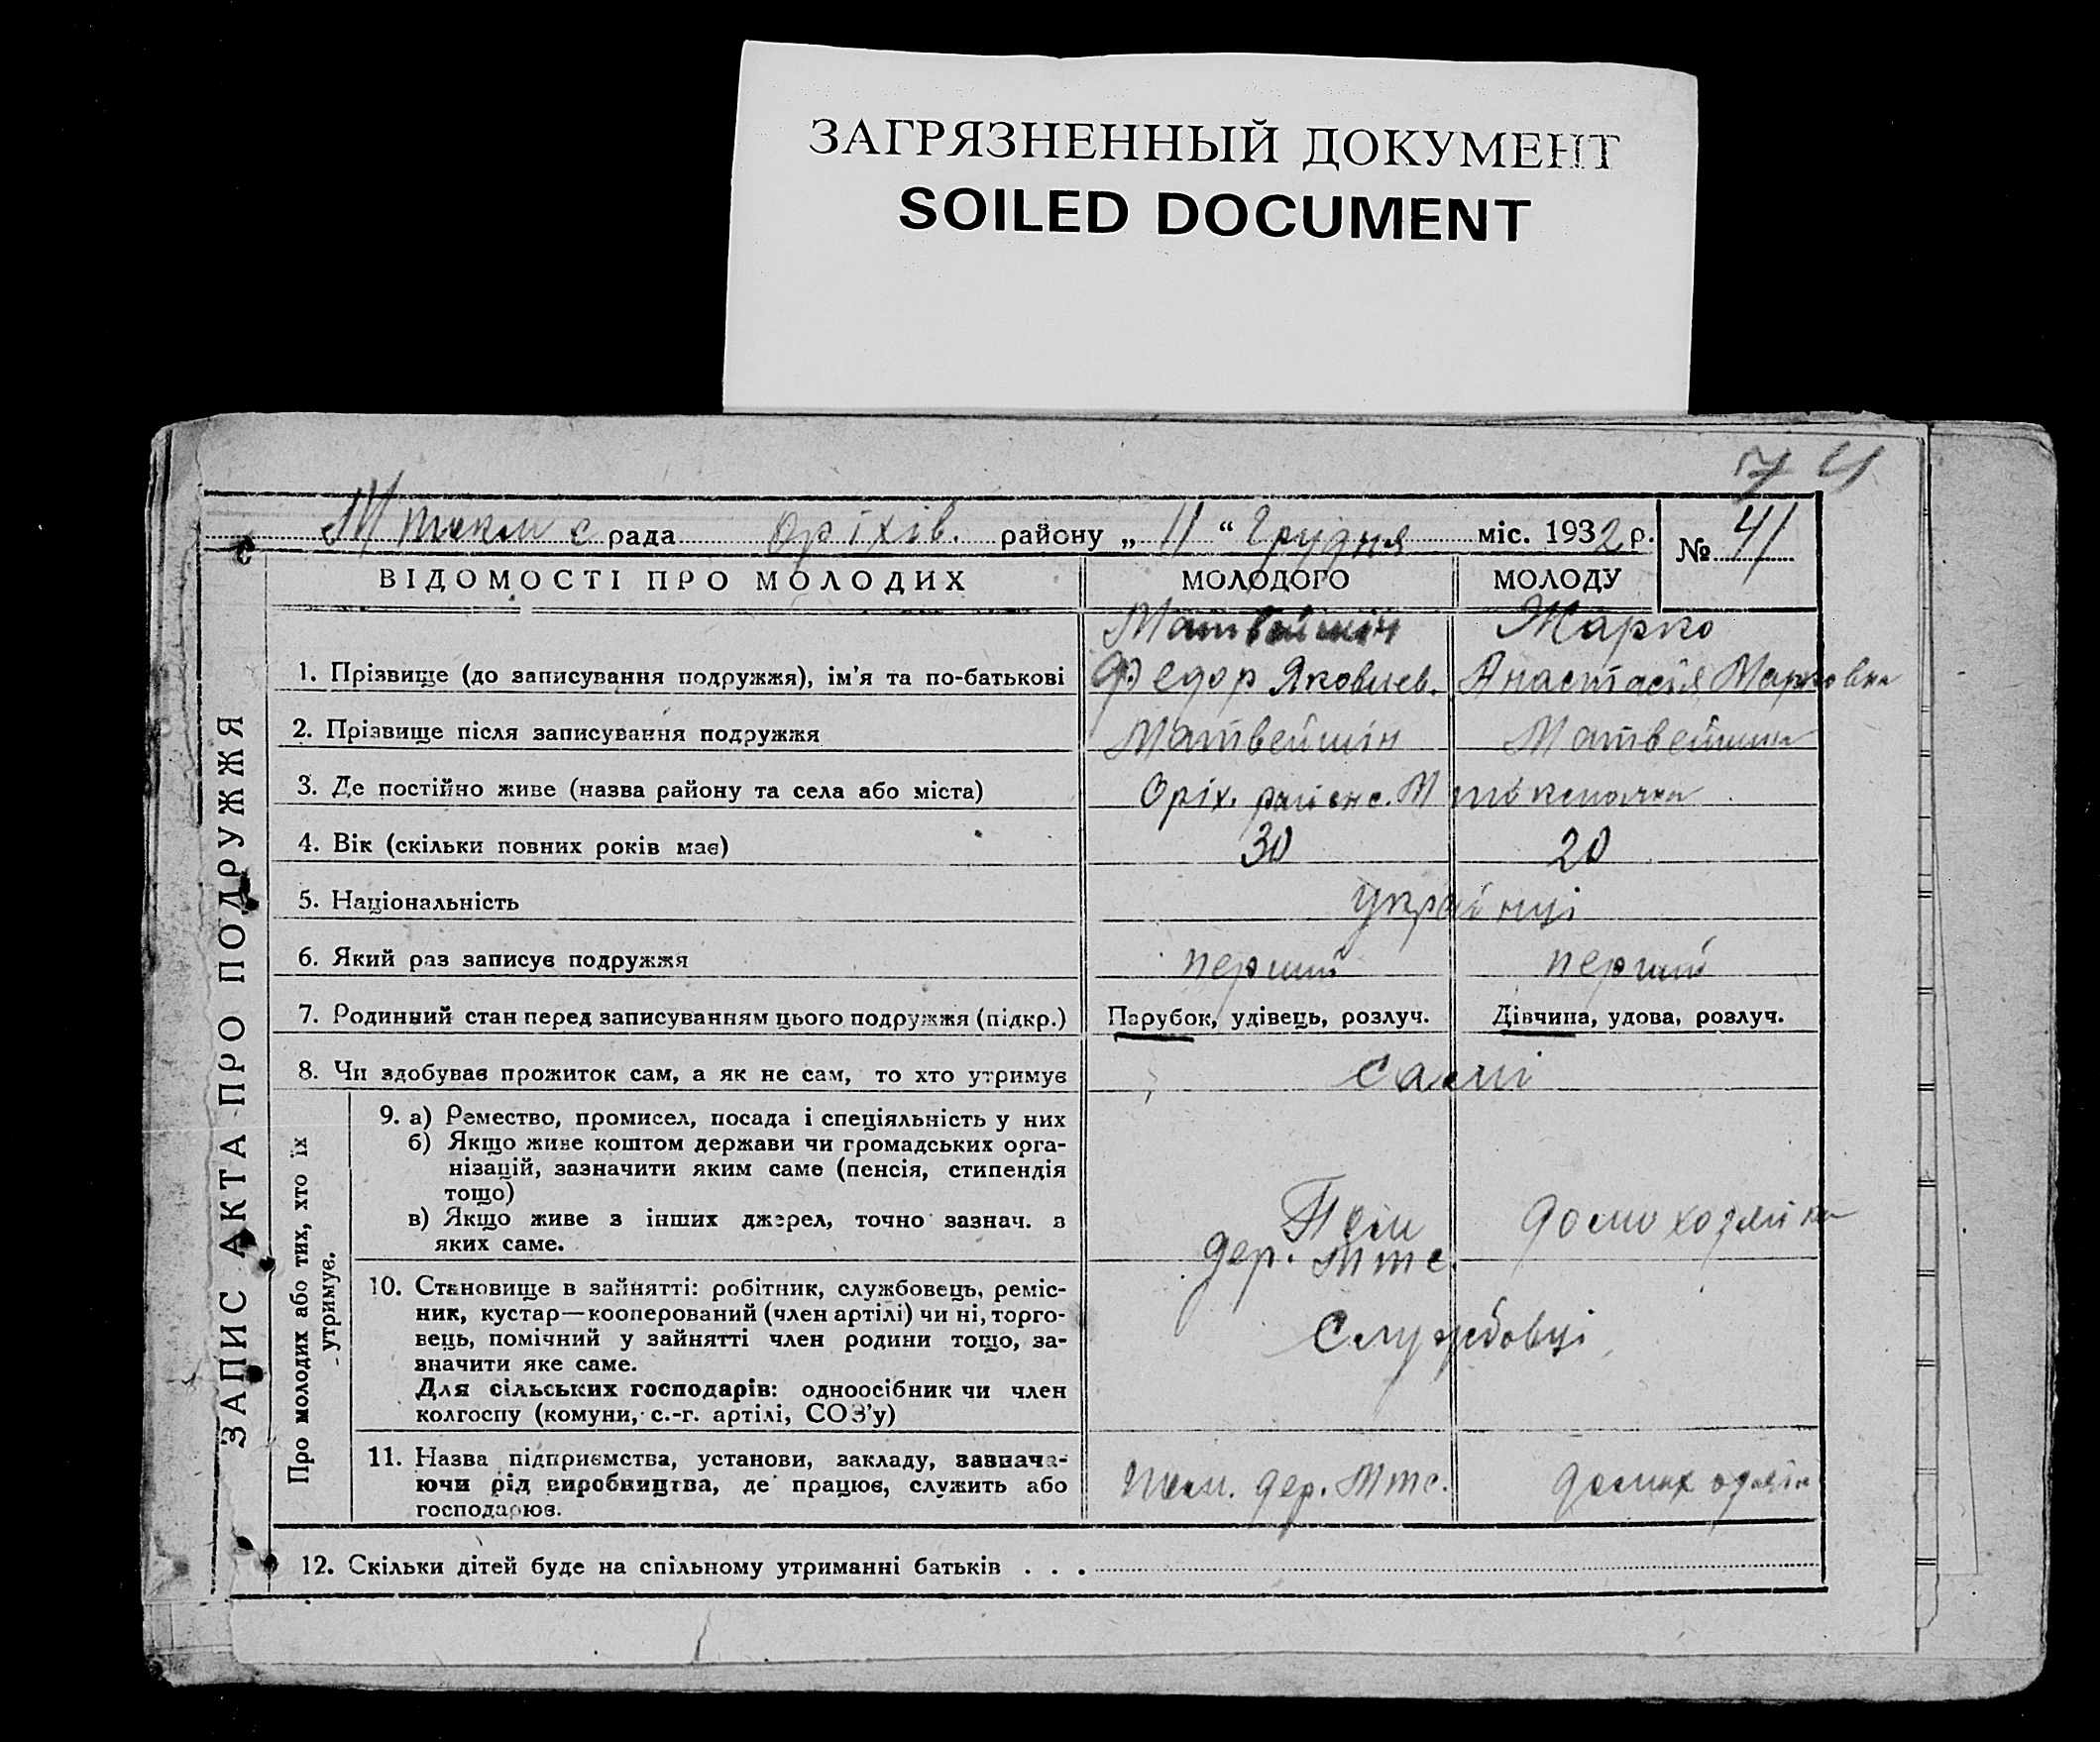 ЗАГРЯЗНЕННЫЙ ДОКУМЕНТ
SOILED DOCUMENT
рада Оріхів. району „ 11 “ Грудня міс. 1932 р. № 41
ВІДОМОСТІ ПРО МОЛОДИХ МОЛОДОГО МОЛОДУ
Матвейшін Жарко
1. Прізвище (до записування подружжя), ім'я та по-батькові Федор Яковлев. Анастасія Марковна
2. Прізвище після записування подружжя Матвейшін Матвейшина
3. Де постійно живе (назва району та села або міста) Оріх.
4. Вік (скільки повних років має) 30 20
5. Національність українці
6. Який раз записує подружжя перший перший
7. Родинний стан перед записуванням цього подружжя (підкр.) Парубок, удівець, розлуч. Дівчина, удова, розлуч.
8. Чи здобував прожиток сам, а як не сам, то хто утримує самі
9. а) Ремество, промисел, посада і спеціяльність у них
б) Якщо живе коштом держави чи громадських орга-
нізацій, зазначити яким саме (пенсія, стипендія
тощо)
в) Якщо живе з інших джерел, точно зазнач. з
яких саме.
Пом домохозяйка
дер. Мтс.
10. Становище в зайнятті: робітник, службовець, реміс-
ник, кустар—кооперований (член артілі) чи ні, торго-
вець, помічний у зайнятті член родини тощо, за-
значити яке саме.
Для сільських господарів: одноосібник чи член
колгоспу (комуни, с.-г. артілі, СОЗ'у)
Службовці
11. Назва підприємства, установи, закладу, зазнача-
ючи рід виробництва, де працює, служить або
господарює.
дер. Мтс.
12. Скільки дітей буде на спільному утриманні батьків . . .
ЗАПИС АКТА ПРО ПОДРУЖЖЯ
Про молодих або тих, хто їх
утримує.